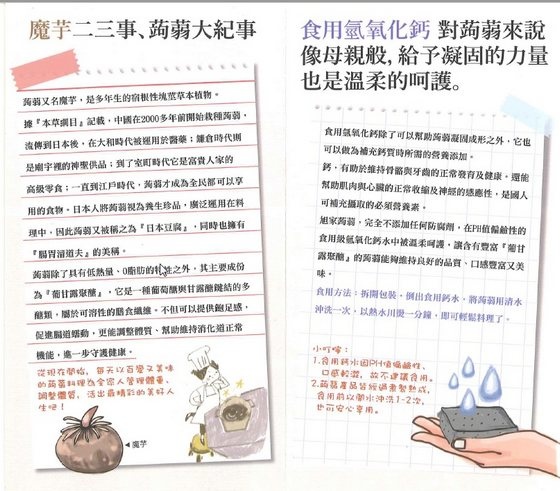 魔芋二三事、蒟蒻大紀事
蒟蒻又名魔芋，是多年生的宿根性塊莖草本植物。
據『本草綱目』記載，中國在2000多年前開始栽種蒟蒻，
流傳到日本後，在大和時代被運用於醫藥；鎌倉時代則
是廟宇裡的神聖供品；到了室町時代它是富貴人家的
高級零食；一直到江戶時代，蒟蒻才成為全民都可以享
用的食物。日本人將蒟蒻視為養生珍品，廣泛運用在料
理中，因此蒟蒻又被稱之為『日本豆腐』，同時也擁有
『腸胃清道夫』的美稱。
蒟蒻除了具有低熱量、0脂肪的特性之外，其主要成份
為『葡甘露聚醣』，它是一種葡萄醣與甘露醣鏈結的多
醣類，屬於可溶性的膳食纖維。不但可以提供飽足感，
促進腸道蠕動，更能調整體質、幫助維持消化道正常
機能，進一步守護健康。
從現在開始，每天以百變又美味
的蒟蒻料理為全家人管理體重、
調整體質，活出最精彩的美好人
生吧！
魔芋
食用氫氧化鈣 對蒟蒻來說
像母親般，給予凝固的力量
也是溫柔的呵護。
食用氫氧化鈣除了可以幫助蒟蒻凝固成形之外，它也
可以做為補充鈣質時所需的營養添加。
鈣，有助於維持骨骼與牙齒的正常發育及健康。還能
幫助肌肉與心臟的正常收縮及神經的感應性，是國人
可補充攝取的必須營養素。
旭家蒟蒻，完全不添加任何防腐劑，在PH值偏鹼性的
食用級氫氧化鈣水中被溫柔呵護，讓含有豐富『葡甘
露聚醣』的蒟蒻能夠維持良好的品質、口感豐富又美
味。
食用方法：拆開包裝，倒出食用鈣水，將蒟蒻用清水
沖洗一次，以熱水川燙一分鐘，即可輕鬆料理了。
小叮嚀：
1.食用鈣水因PH值偏鹼性、
口感較澀，故不建議食用。
2.蒟蒻產品皆經過煮熟熟成，
食用前以開水沖洗1-2次，
也可安心享用。